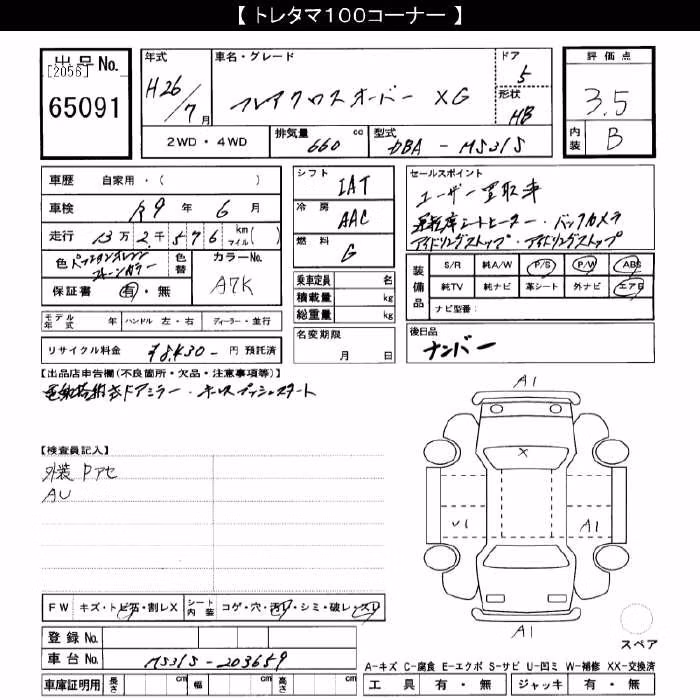 【 トレタマ100コーナー 】
出品 No.
[2056]
65091
年式
H26/7月
車名・グレード
フレアクロスオーバー XG
ドア
5
形状
HB
評価点
3.5
内装
B
2WD・4WD
排気量
660 cc
型式
DBA - MS31S
車歴 自家用・( )
車検 R9 年 6 月
走行 13万2千576 km マイル( )
色
色替
カラーNo.
A7K
保証書 有・無
モデル年式 年
ハンドル 左・右
ディーラー・並行
リサイクル料金 ¥8,430- 円 預託済
シフト
IAT
冷房
AAC
燃料
G
乗車定員 名
積載量 kg
総重量 kg
名変期限
月 日
セールスポイント
ユーザー買取車
運転席シートヒーター・バックカメラ
アイドリングストップ・アイドリングストップ
装備品
S/R 純A/W P/S P/W ABS
純TV 純ナビ 革シート 外ナビ エアB
ナビ型番:
後日品
ナンバー
【出品店申告欄(不良箇所・欠品・注意事項等)】
電動格納式ドアミラー・キーレスプッシュスタート
【検査員記入】
外装 Pアセ
AU
A1
X
U1
A1
A1
スペア
FW キズ・トビ石・割レX
シート内装 コゲ・穴・汚レ・シミ・破レ・スレ
登録 No.
車台 No. MS31S-203659
車庫証明用 長さ cm 幅 cm 高さ cm
A-キズ C-腐食 E-エクボ S-サビ U-凹ミ W-補修 XX-交換済
工具 有・無 ジャッキ 有・無